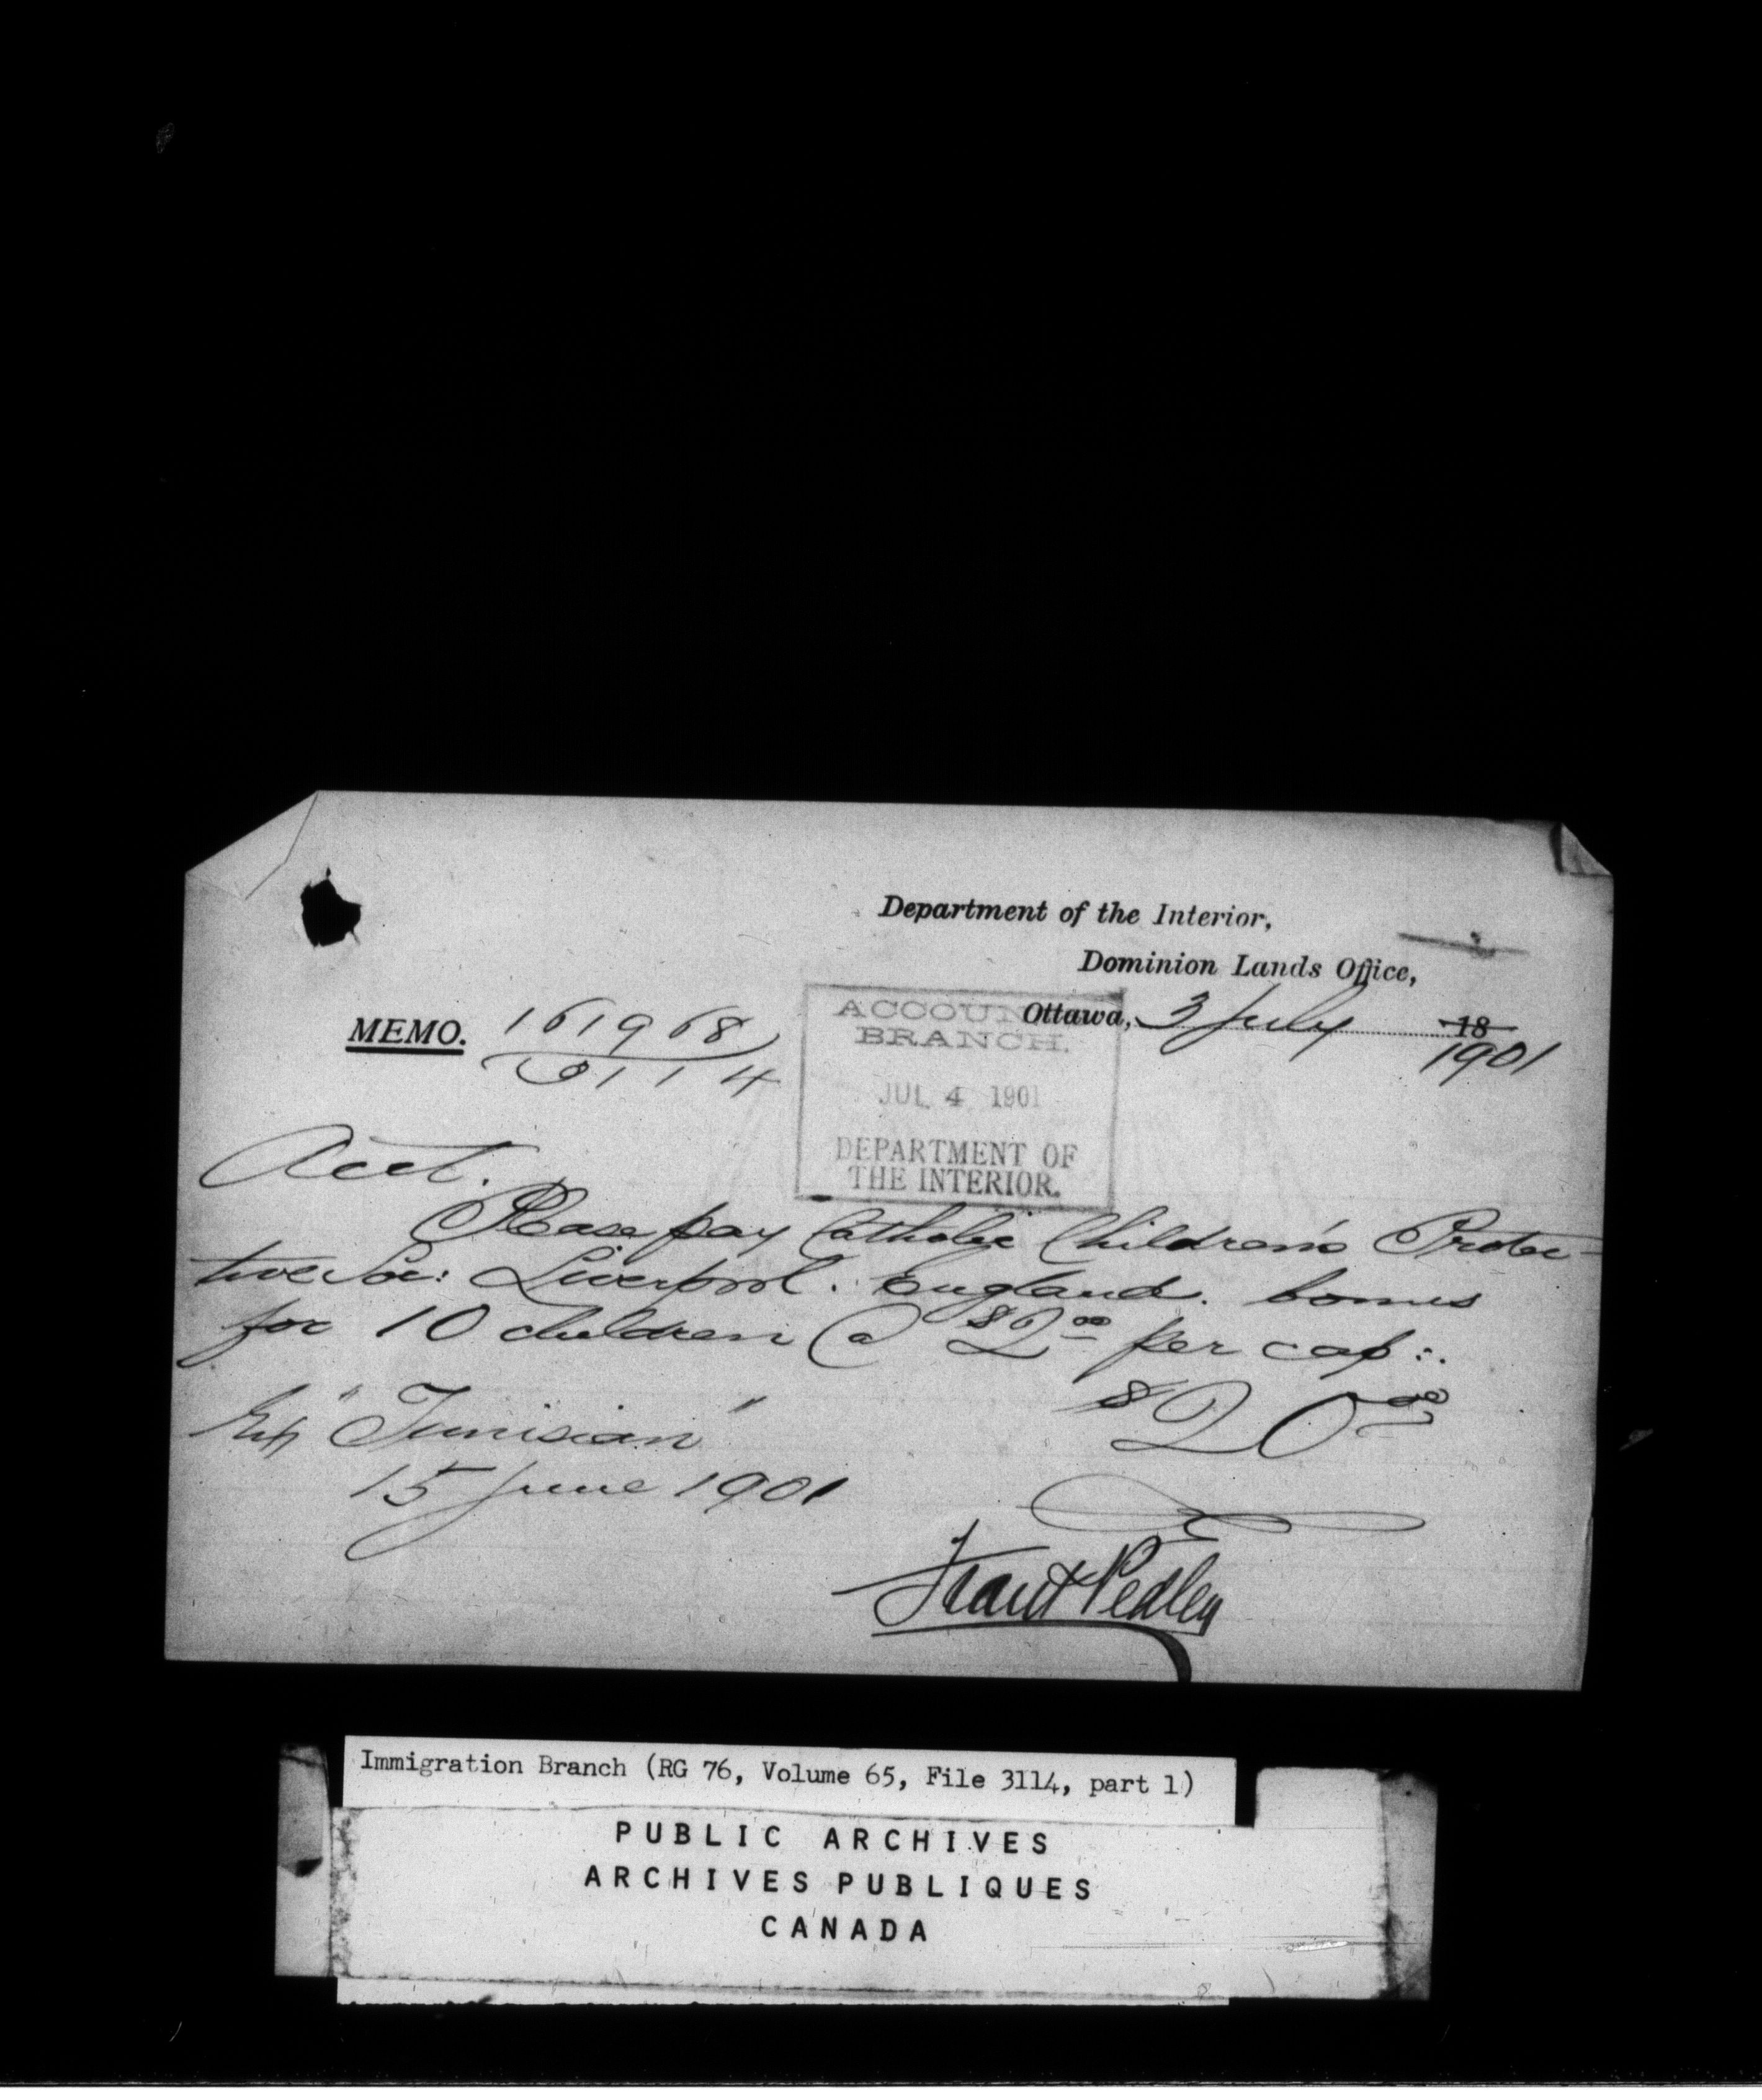 Department of the Interior,
Dominion Lands Office,
Ottawa, 3 July 18
1901
MEMO. 161968
3114
ACCOUN
BRANCH.
JUL 4 1901
DEPARTMENT OF
THE INTERIOR.
Acct.
Please pay Catholic Children's Protec-
tive Soc: Liverpool. England. bonus
for 10 children @ $2.00 per cap:.
$20.00
Ex "Tunisian"
15 June 1901
Frank Pedley
Immigration Branch (RG 76, Volume 65, File 3114, part 1)
PUBLIC ARCHIVES
ARCHIVES PUBLIQUES
CANADA